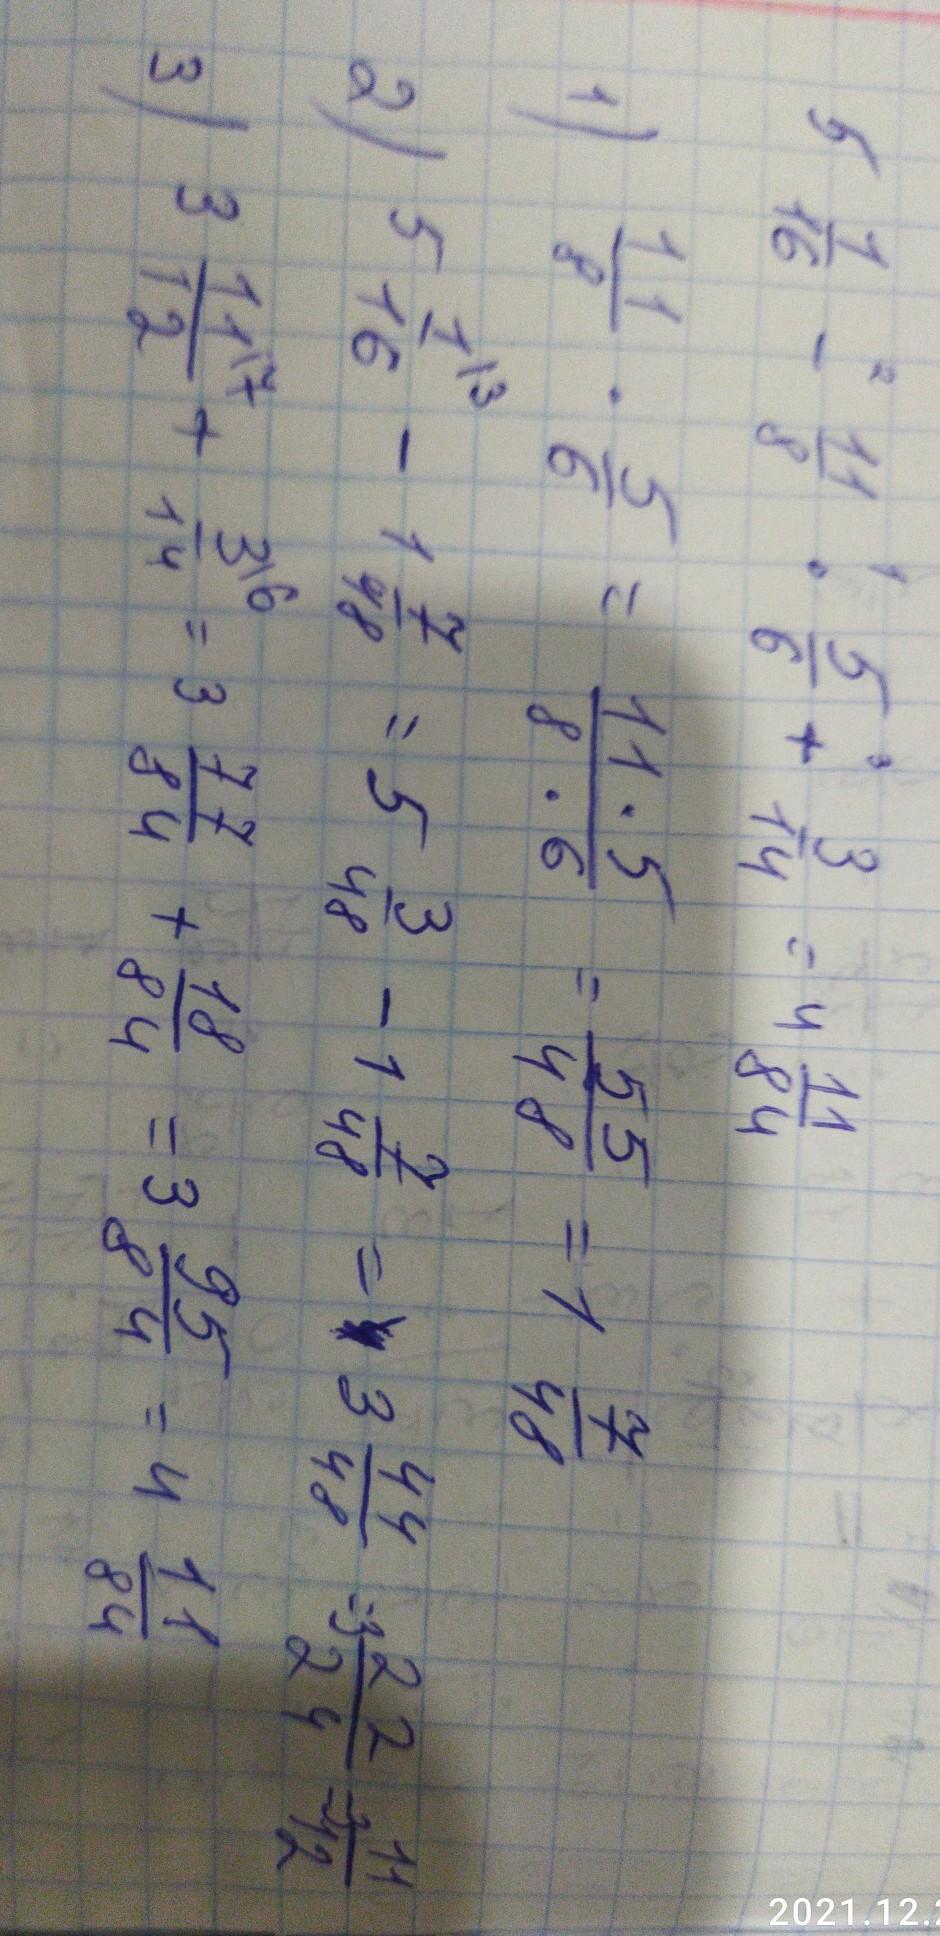 5 1/16 - ² 11/8 ¹ · 5/6 + ³ 3/14 = 4 11/84
1) 11/8 · 5/6 = 11·5/8·6 = 55/48 = 1 7/48
2) 5 1\3/16 - 1 7/48 = 5 3/48 - 1 7/48 = 3 44/48 = 3 22/24 = 3 11/12
3) 3 11\7/12 + 3\6/14 = 3 77/84 + 18/84 = 3 95/84 = 4 11/84
2021.12.2